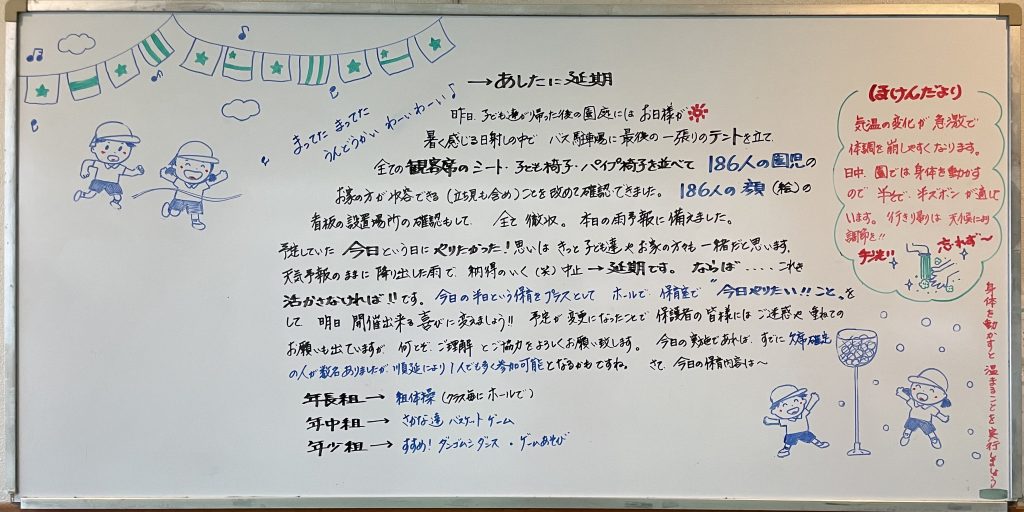 →あしたに延期
"まってた まってた
うんどうかい わーいわーい♪
昨日、子ども達が帰った後の園庭にはお日様が
暑く感じる日射しの中で バス駐車場に最後の一張りのテントを立て、
全ての観客席のシート・子ども椅子・パイプ椅子を並べて 186人の園児の
お家の方が収容できる(立ち見も含め)ことを改めて確認できました。 186人の顔(絵)の
看板の設置場所の確認もして 全て撤収。本日の雨予報に備えました。
予定していた 今日という日にやりたかった!思いは きっと子ども達やお家の方々も一緒だと思います。
天気予報のままに降り出した雨で、納得のいく(笑)中止→延期です。 ならば‥‥これを
活かさなければ!!です。今日の半日という保育をプラスとして ホールで、保育室で "今日やりたい!!こと"を
して 明日 開催出来る喜びに変えましょう!! 予定が変更になったことで 保護者の皆様にはご迷惑や重ねての
お願いも出ていますが 何とぞ、ご理解とご協力をよろしくお願い致します。 今日の実施であれば、すでに欠席確定
の人が数名ありましたが、順延により1人でも多く参加可能となるかもですね。 さて、今日の保育内容は〜
年長組→ 組体操 (クラス毎に ホールで)
年中組→ さかな達 バスケットゲーム
年少組→ すすめ!ダンゴムシダンス ・ゲームあそび
ほけんだより
気温の変化が急激で
体調を崩しやすくなります。
日中、園では身体を動かす
ので 半そで、半ズボンが適して
います。行き帰りは 天候により
調節を!!
手洗い
忘れず〜
身体を動かすと温まることを実行しましょう